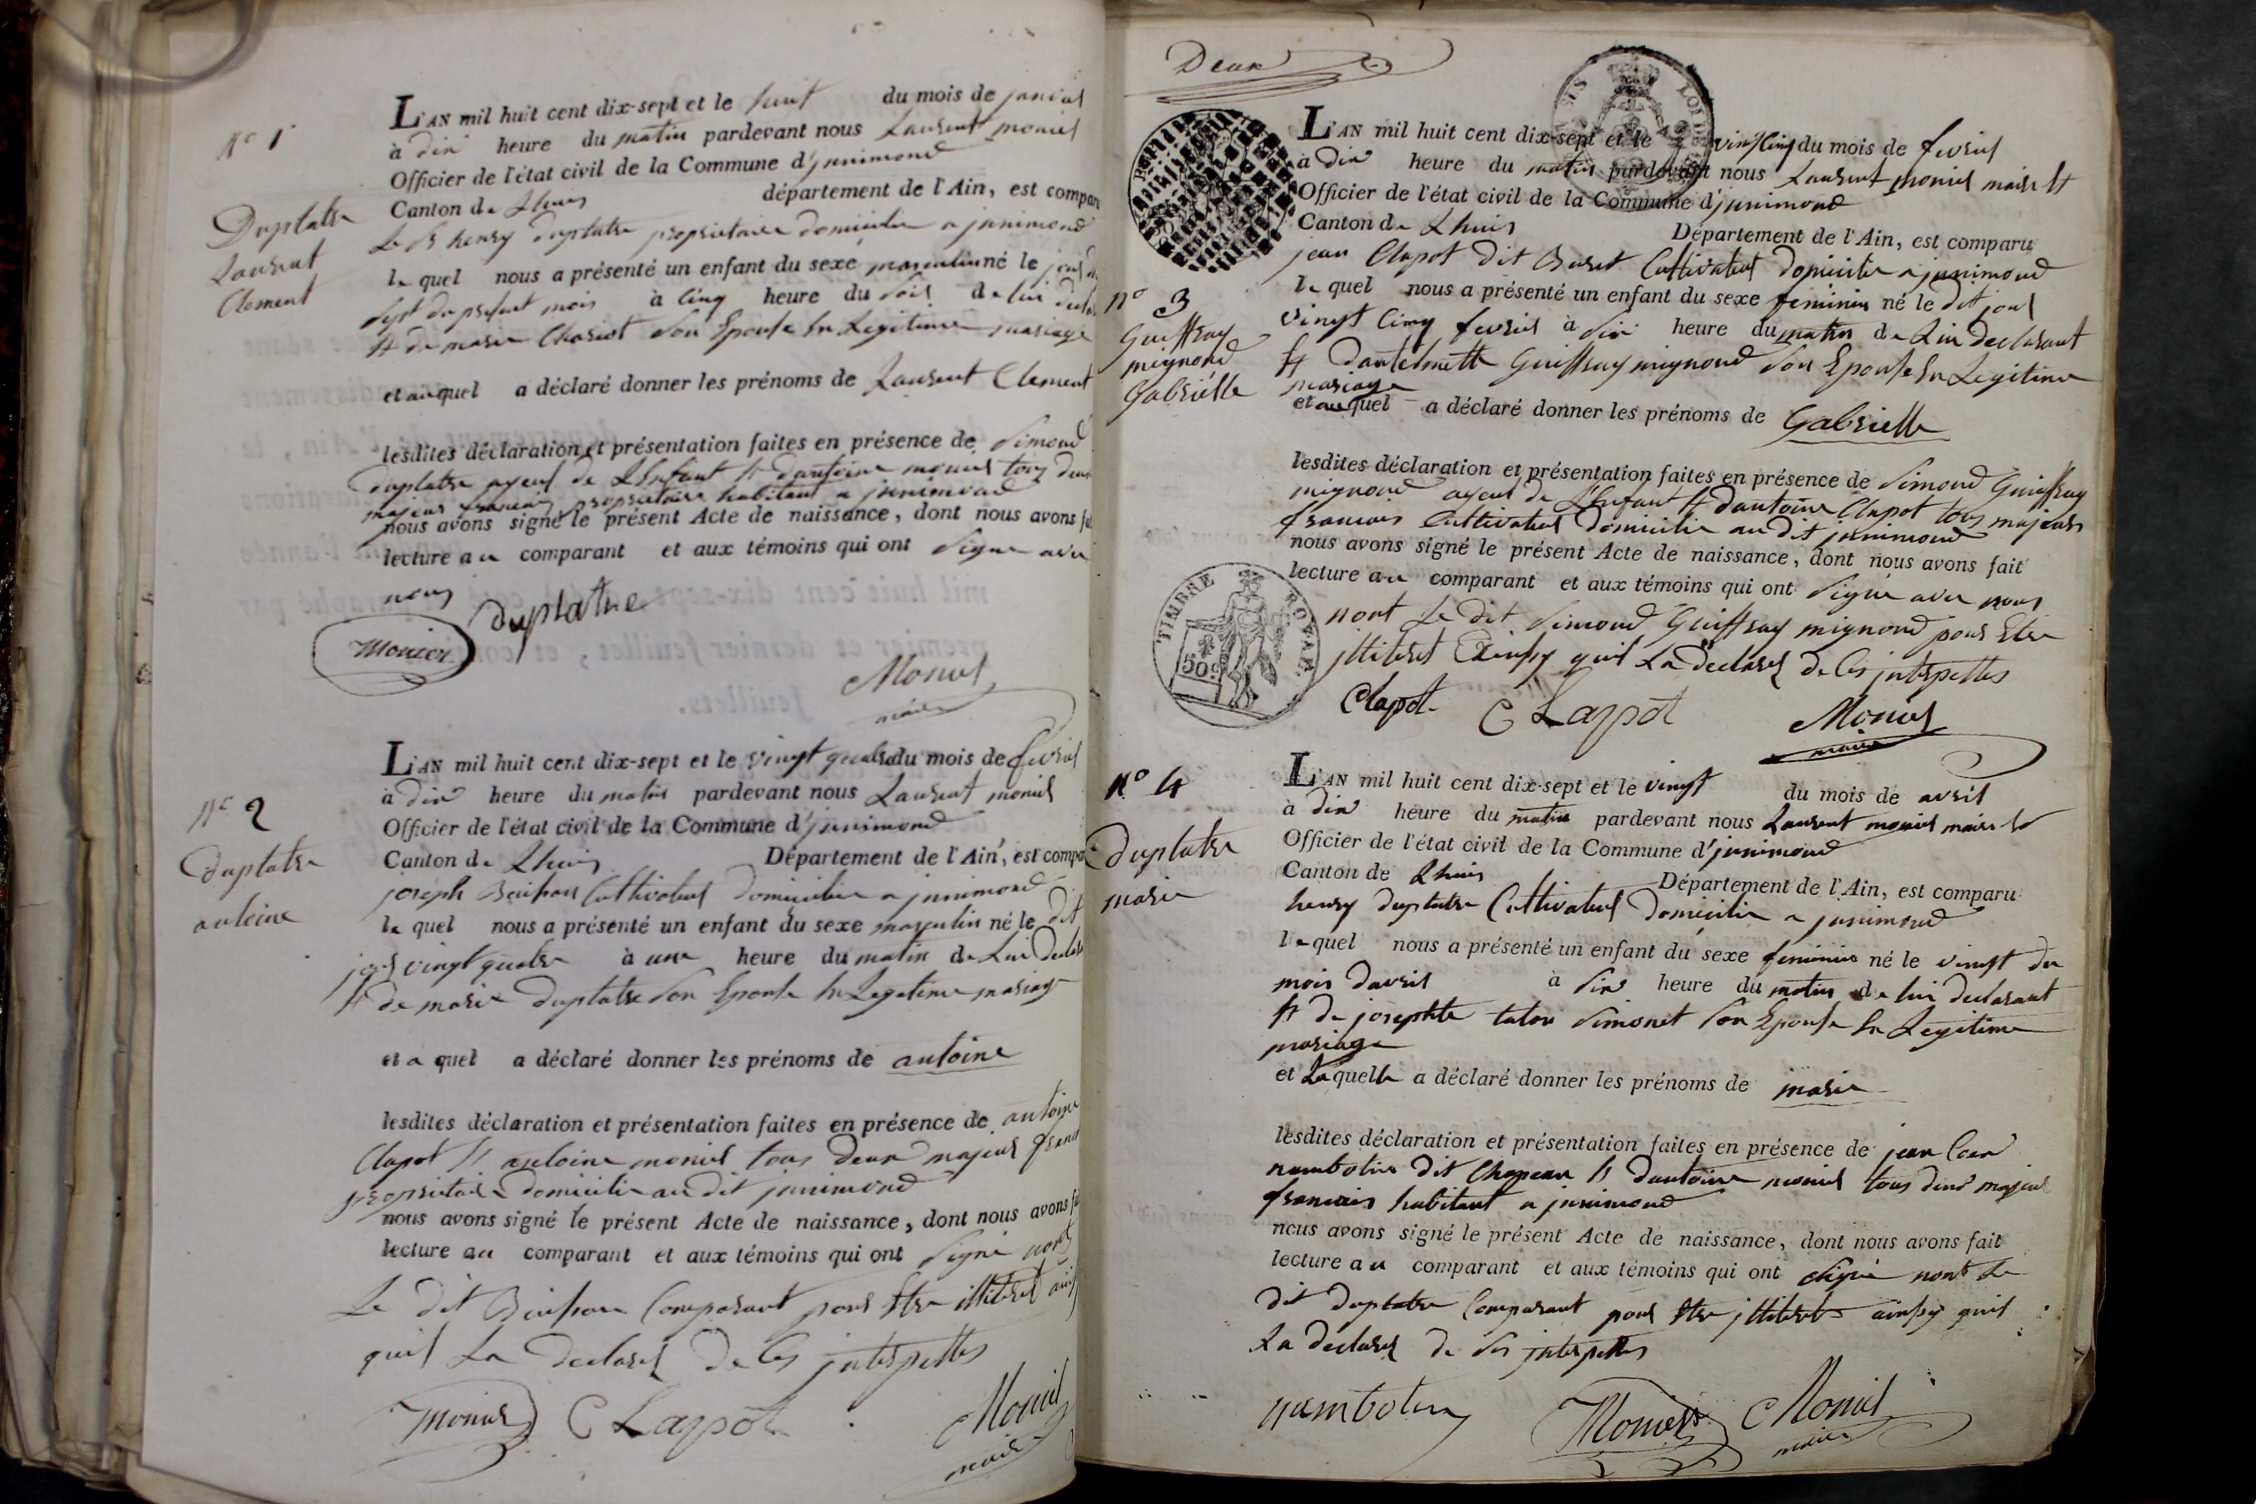 N° 1
Duplatre
Laurent
Clement
L'AN mil huit cent dix-sept et le huit du mois de janvier
à dix heure du matin pardevant nous Laurent monier
Officier de l'état civil de la Commune d'jnnimond
Canton de Lhuis département de l'Ain, est compar
le Sr henry duplatre proprietaire domicilie a jnnimond
le quel nous a présenté un enfant du sexe masculin né le jour
sept du present mois à cinq heure du soir de lui decla
et de marie Chariot son Epouse En Legitime mariage
et au quel a déclaré donner les prénoms de Laurent Clement
lesdites déclaration et présentation faites en présence de Simond
duplatre ayeul de L'Enfant et d'antoine monier tous deux
majeur francais proprietaire habitant a jnnimond
nous avons signé le présent Acte de naissance, dont nous avons fai
lecture au comparant et aux témoins qui ont signe avec
nous
duplatre
monier
Monier
maire
N° 2
Duplatre
antoine
L'AN mil huit cent dix-sept et le vingt quatre du mois de fevrier
à dix heure du matin pardevant nous Laurent monier
Officier de l'état civil de la Commune d'jnnimond
Canton de Lhuis Département de l'Ain, est compa
joseph Cultivateur domicilie a jnnimond
le quel nous a présenté un enfant du sexe masculin né le dit
jour vingt quatre à une heure du matin de Lui Decla
et de marie duplatre son Epouse En Legitime mariage
et a quel a déclaré donner les prénoms de antoine
lesdites déclaration et présentation faites en présence de antoine
Clapot et antoine monier tous deux majeur franc
proprietaire domicilie au dit jnnimond
nous avons signé le présent Acte de naissance, dont nous avons fa
lecture au comparant et aux témoins qui ont signé nont
Le dit Comparant pour Etre illiteret ainsy
quil La declarer de Ces jnterpelles
Monier
Clapot
Monier
maire
Deux
TIMBRE ROYAL
50c
N° 3
Guiffray
mignond
Gabriélle
L'AN mil huit cent dix-sept et le vingt Cinq du mois de fevrier
à dix heure du matin pardevant nous Laurent monier maire et
Officier de l'état civil de la Commune d'jnnimond
Canton de Lhuis Département de l'Ain, est comparu
jean Clapot dit Cultivateur domicilie a jnnimond
le quel nous a présenté un enfant du sexe feminin né le dit jour
vingt Cinq fevrier à six heure du matin de Lui declarant
et dantelmette Guiffray mignond son Epouse En Legitime
mariage
et au quel a déclaré donner les prénoms de Gabrielle
lesdites déclaration et présentation faites en présence de Simond Guiffray
mignond ayeul de l'Enfant et dantoine Clapot tous majeurs
francais Cultivateur domicilie au dit jnnimond
nous avons signé le présent Acte de naissance, dont nous avons fait
lecture au comparant et aux témoins qui ont signé avec nous
nont Le dit Simond Guiffray mignond pour Etre
jlliteret Ainsy quil La declarer de Ces jnterpelles
Clapot
Clapot
Monier
maire
N° 4
duplatre
marie
L'AN mil huit cent dix-sept et le vingt du mois de avril
à dix heure du matin pardevant nous Laurent monier maire et
Officier de l'état civil de la Commune d'jnnimond
Canton de Lhuis Département de l'Ain, est comparu
henry duplatre Cultivateur domicilie a jnnimond
le quel nous a présenté un enfant du sexe feminin né le vingt du
mois davril à six heure du matin de lui declarant
et de josephte talon simonet son Epouse En Legitime
mariage
et Laquelle a déclaré donner les prénoms de marie
lesdites déclaration et présentation faites en présence de jean
nambotin dit Chapeau et dantoine monier tous deux majeur
francais habitant a jnnimond
nous avons signé le présent Acte de naissance, dont nous avons fait
lecture au comparant et aux témoins qui ont signé nont Le
dit duplatre Comparant pour Etre jlliteret ainsy quil
La declarer de Ses jnterpelles
nambotin
Monier
Monier
maire